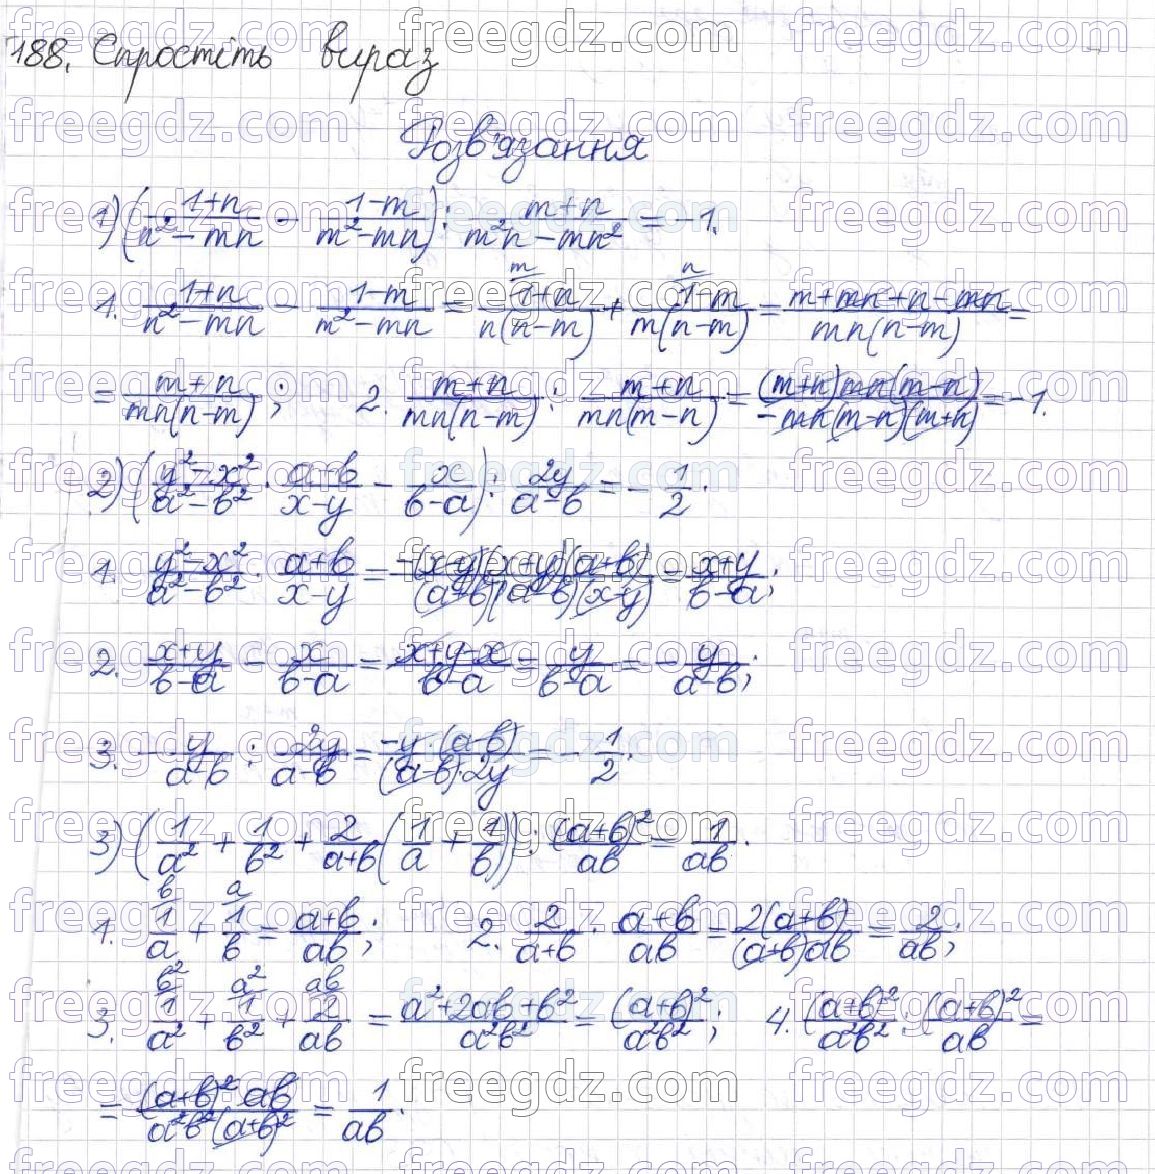 188. Спростіть вираз
Розв'язання
1) ((1+n)/(n²-mn) - (1-m)/(m²-mn)) : (m+n)/(m²n-mn²) = -1.
1. (1+n)/(n²-mn) - (1-m)/(m²-mn) = m/ (1+n)/(n(n-m)) + n/ (1-m)/(m(n-m)) = (m+mn+n-mn)/(mn(n-m)) =
= (m+n)/(mn(n-m)); 2. (m+n)/(mn(n-m)) : (m+n)/(mn(m-n)) = ((m+n)mn(m-n))/(-mn(m-n)(m+n)) = -1.
2) ((y²-x²)/(a²-b²) · (a+b)/(x-y) - x/(b-a)) : 2y/(a-b) = -1/2.
1. (y²-x²)/(a²-b²) · (a+b)/(x-y) = (-(x-y)(x+y)(a+b))/((a+b)(a-b)(x-y)) = (x+y)/(b-a);
2. (x+y)/(b-a) - x/(b-a) = (x+y-x)/(b-a) = y/(b-a) = -y/(a-b);
3. -y/(a-b) : 2y/(a-b) = (-y·(a-b))/((a-b)·2y) = -1/2.
3) (1/a² + 1/b² + 2/(a+b) (1/a + 1/b)) : (a+b)²/ab = 1/ab.
1. b/ 1/a + a/ 1/b = (a+b)/ab; 2. 2/(a+b) · (a+b)/ab = 2(a+b)/((a+b)ab) = 2/ab;
3. b²/ 1/a² + a²/ 1/b² + ab/ 2/ab = (a²+2ab+b²)/a²b² = (a+b)²/a²b²; 4. (a+b)²/a²b² : (a+b)²/ab =
= ((a+b)² ab)/(a²b²(a+b)²) = 1/ab.
freegdz.com